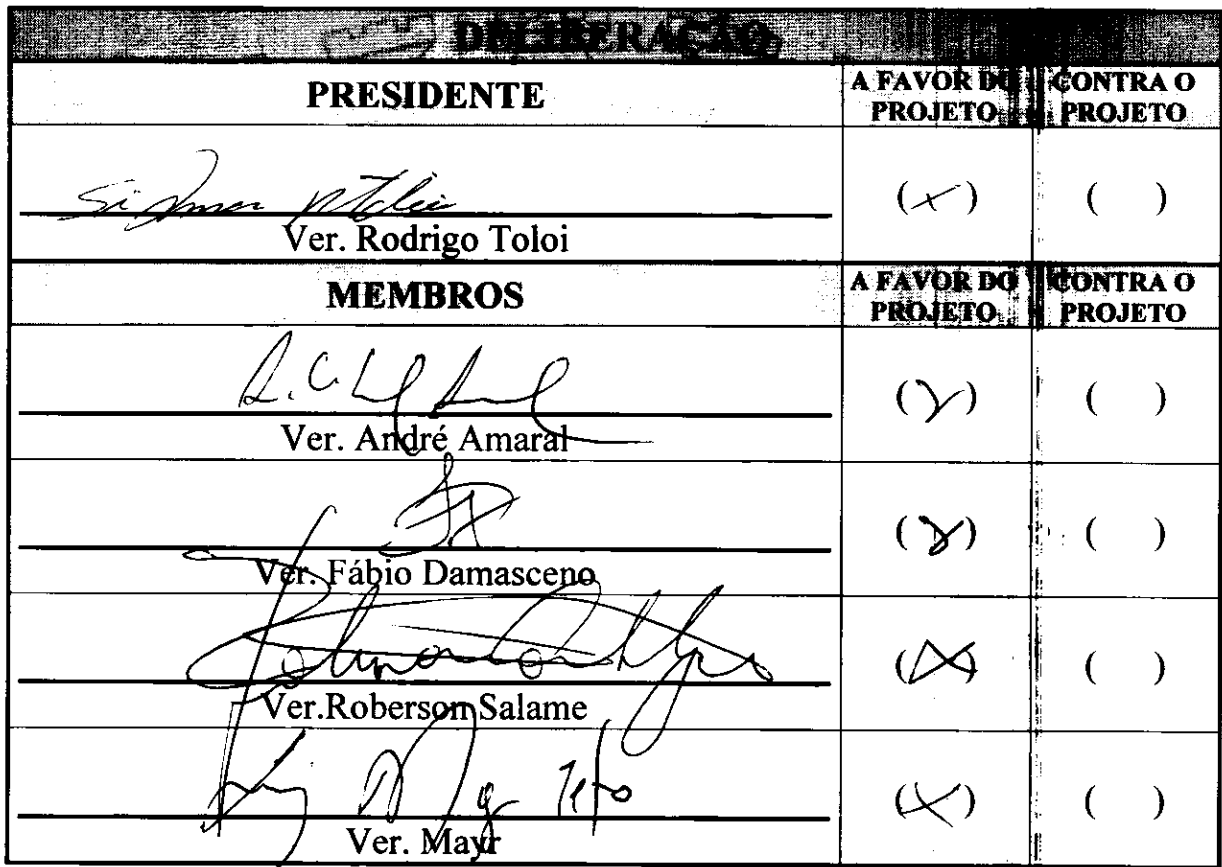 DELIBERAÇÃO
PRESIDENTE
A FAVOR DO PROJETO
CONTRA O PROJETO
(x)
( )
Ver. Rodrigo Toloi
MEMBROS
A FAVOR DO PROJETO
CONTRA O PROJETO
(x)
( )
Ver. André Amaral
(x)
( )
Ver. Fábio Damasceno
(x)
( )
Ver.Roberson Salame
(x)
( )
Ver. Mayr